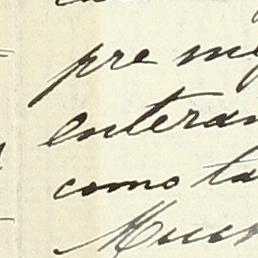 pre me
enteran
como ta
Much